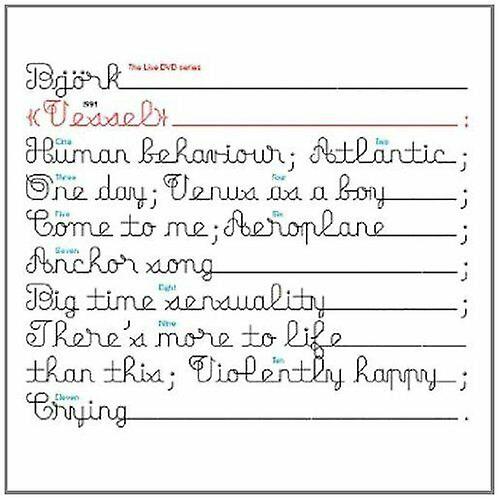 The Live DVD series
Björk
1994
«Vessel» ;
One Two
Human behaviour; Atlantic ;
Three Four
One day; Venus as a boy ;
Five Six
Come to me; Aeroplane ;
Seven
Anchor song ;
Eight
Big time sensuality ;
Nine
There's more to life
Ten
than this; Violently happy ;
Eleven
Crying .